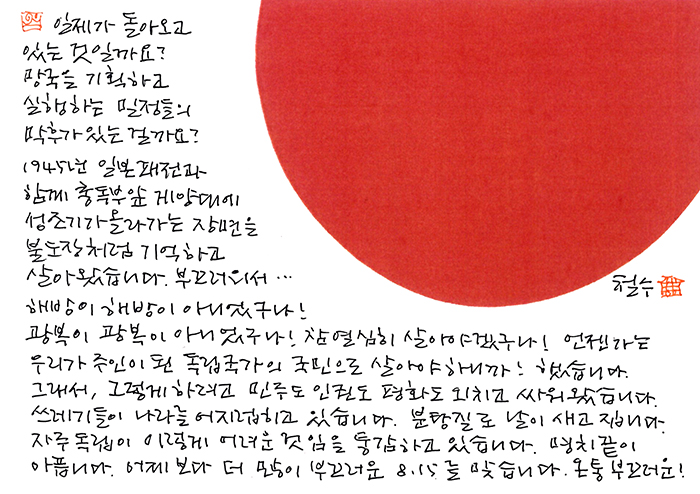 일제가 돌아오고
있는 것일까요?
망국을 기획하고
실행하는 밀정들의
막후가 있는 걸까요?
1945년 일본패전과
함께 총독부앞 게양대에
성조기가 올라가는 장면을
불도장처럼 기억하고
살아왔습니다. 부끄러워서 …
해방이 해방이 아니었구나!
광복이 광복이 아니었구나! 참 열심히 살아야겠구나! 언젠가는
우리가 주인이 된 독립국가의 국민으로 살아야하니까! 했습니다.
그래서, 그렇게 하려고 민주도 인권도 평화도 외치고 싸워왔습니다.
쓰레기들이 나라를 어지럽히고 있습니다. 분탕질로 날이 새고 집니다.
자주독립이 이렇게 어려운 것임을 통감하고 있습니다. 명치끝이
아픕니다. 어제보다 더 많이 부끄러운 8.15를 맞습니다. 온통 부끄러운!
철수